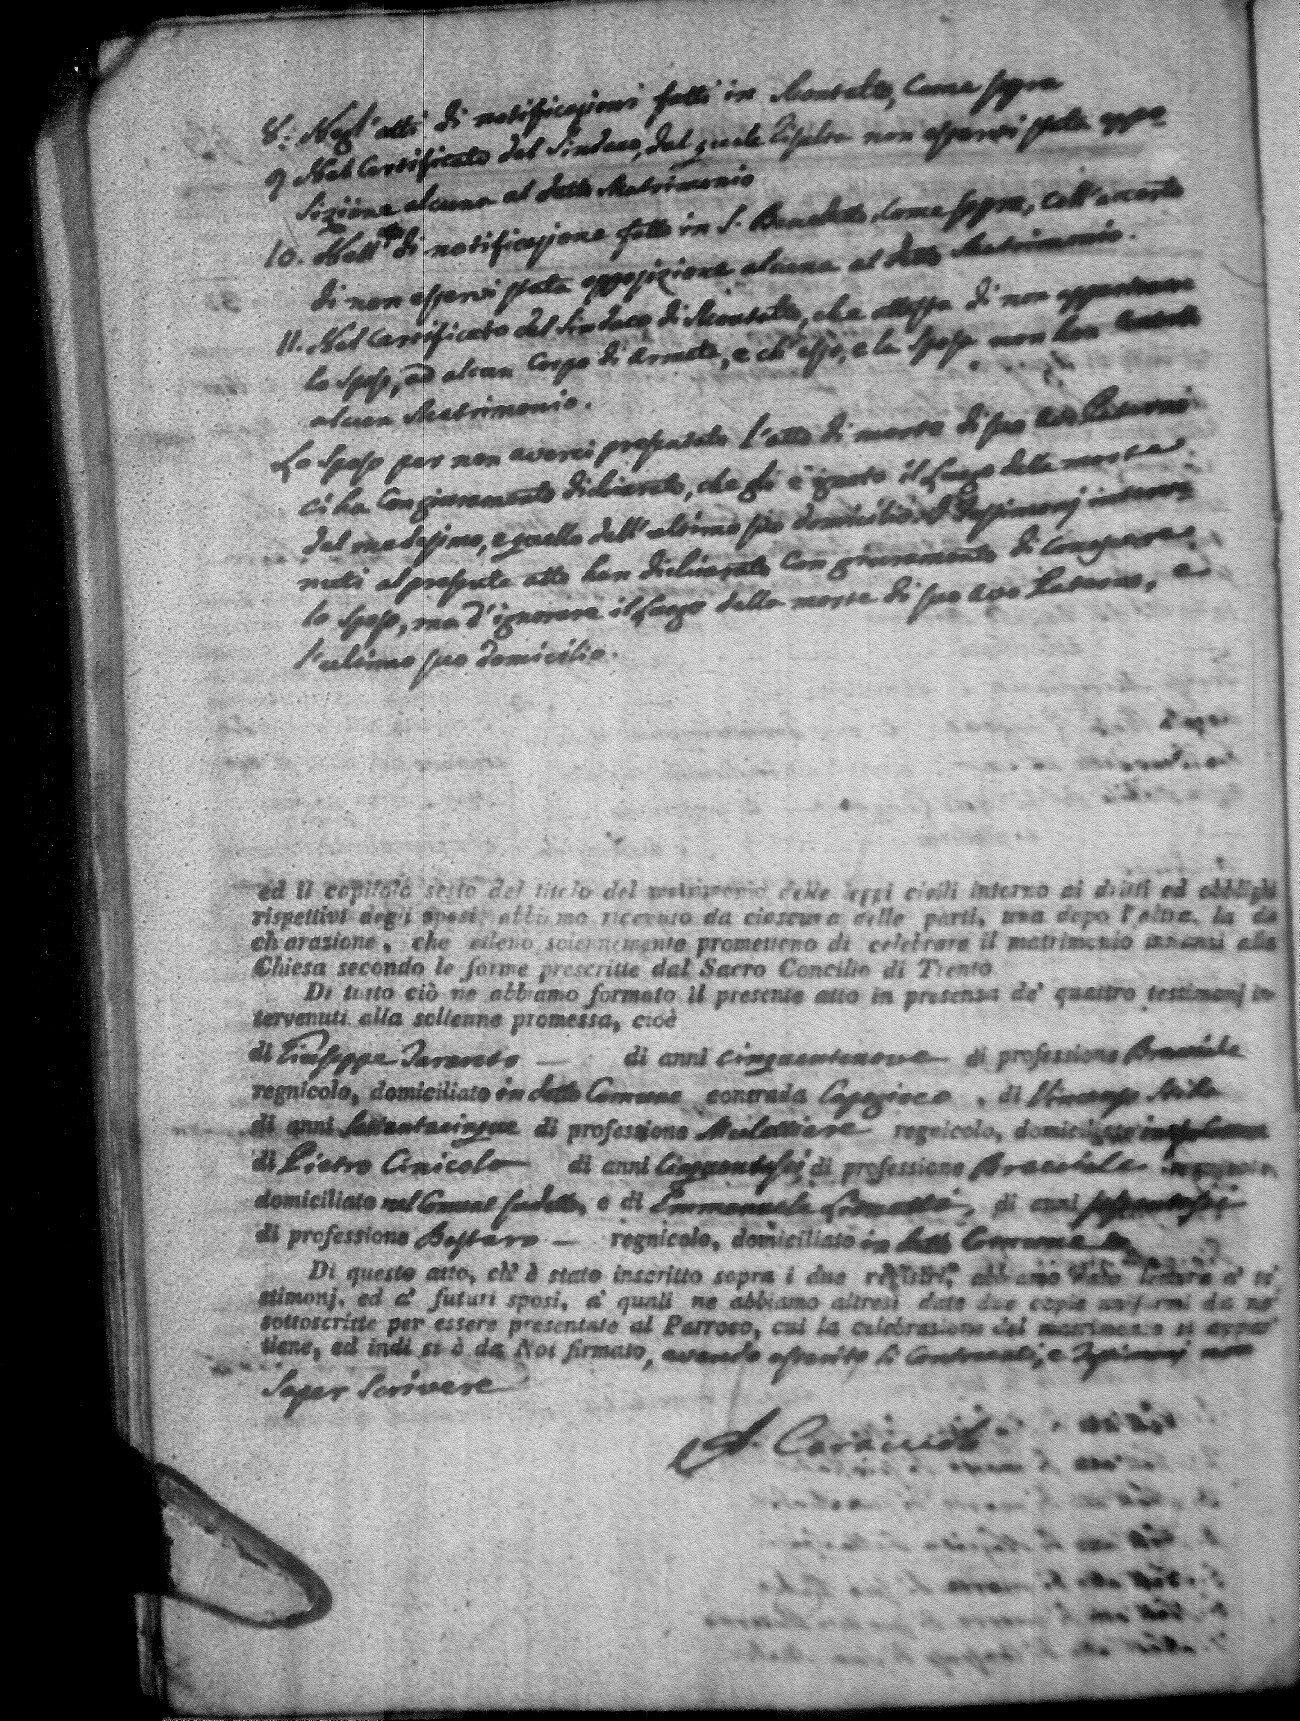 8. Negl'atti di notificazioni fatti in Montalto, come sopra
9 Nel Certificato del Sindaco, dal quale risulta non esservi stata oppo-
sizione alcuna al detto Matrimonio
10. Nell' di notificazione fatto in S. Benedetto come sopra, coll'
di non esservi stata opposizione alcuna al detto Matrimonio.
11. Nel Certificato del Sindaco di Montalto, che attesta di non appartenere
lo sposo, ad alcun Corpo di Armata, e ch'esso, e la sposa non han
alcun Matrimonio.
Lo sposo per non averci presentato l'atto di morte di suo avo Paterno
ci ha con giuramento dichiarato, che gli è ignoto il luogo della morte
del medesimo, e quello dell'ultimo suo domicilio. I Testimonj interve-
nuti al presente atto han dichiarato con giuramento di conoscere
lo sposo, ma d'ignorare il luogo della morte di suo avo Paterno, e
l'ultimo suo domicilio.
ed il capitolo sesto del titolo del matrimonio delle leggi civili intorno ai dritti ed obblighi
rispettivi degli sposi, abbiamo ricevuto da ciascuna delle parti, una dopo l'altra, la di
chiarazione, che elleno solennemente promettono di celebrare il matrimonio innanzi alla
Chiesa secondo le forme prescritte dal Sacro Concilio di Trento
Di tutto ciò ne abbiamo formato il presente atto in presenza de' quattro testimonj in-
tervenuti alla sollenne promessa, cioè
di Giuseppe Taranto — di anni cinquantanove di professione Bracciale
regnicolo, domiciliato in detto Comune contrada , di Vincenzo
di anni settantacinque di professione Mulattiere regnicolo, domiciliato
di Pietro Cinicolo di anni cinquantasei di professione Bracciale regnicolo,
domiciliato nel Comune sudetto, e di Emmanuele di anni sessantasei
di professione Bastaro — regnicolo, domiciliato in detto Comune
Di questo atto, ch' è stato inscritto sopra i due registri, abbiamo dato lettura a' te
stimonj, ed a' futuri sposi, a' quali ne abbiamo altresì date due copie uniformi da noi
sottoscritte per essere presentate al Parroco, cui la celebrazione del matrimonio si appar
tiene, ed indi si è da Noi firmato, avendo asserito li Contraenti, e Testimonj non
Saper Scrivere